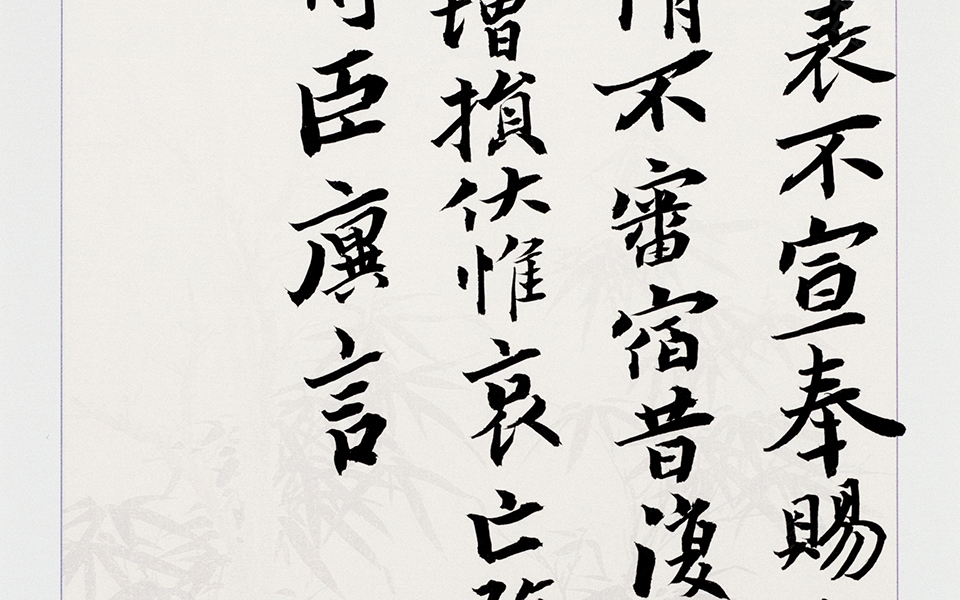 表不宣奉賜
情不審宿昔復
增損伏惟哀亡
臣廙言